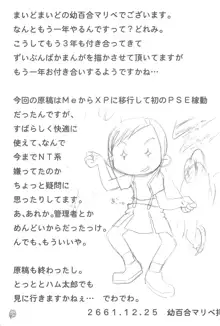 まいどまいどの幼百合マリベでございます。
なんともう一年やるんですって？どれみ。
こうしてもう３年も付き合ってきて
ずいぶんかまんがを描かさせて頂いてますが
もう一年お付き合いするようですかね…
今回の原稿はＭｅからＸＰに移行して初のＰＳＥ稼動
だったんですが、
すばらしく快適に
使えて、なんで
今までＮＴ系
嫌ってたのか
ちょっと疑問に
思ったりしてます。
あ、あれか。管理者とか
めんどいからだったっけ。
んでも、もういいや。
原稿も終わったし。
とっととハム太郎でも
見に行きますかねぇ… でわでわ。
２６６１．１２．２５ 幼百合マリベ拝